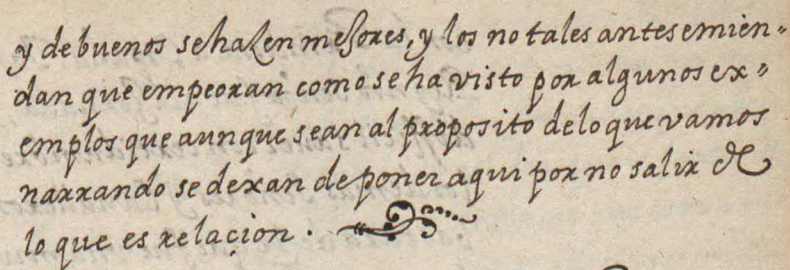 y de buenos se hazen mejores, y los no tales antes emien=
dan que empeoran como se ha visto por algunos ex=
emplos que aunque sean al proposito de lo que vamos
narrando se dexan de poner aqui por no salir de
lo que es relaçion.